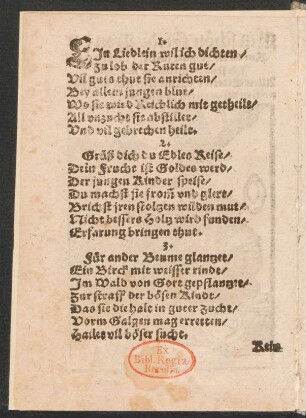 1.
EIn Liedlein wil ich dichten/
Zu lob der Ruten gut/
Vil guts thut sie anrichten/
Bey allem jungen blut/
Wo sie wird Reichlich mit getheilt/
All vnzucht sie abstillet/
Vnd vil gebrechen heilt.
2.
Grüß dich du Edles Reise/
Dein Frucht ist Goldes werd/
Der jungen Kinder speise/
Du machst sie from vnd glert/
Brichst jren stoltzen wilden mut/
Nicht bessers Holtz wird funden/
Erfarung bringen thut.
3.
Für ander Beume glantzet/
Ein Birck mit weisser rinde/
Im Wald von Gott gepflantzet/
Zur straff der bösen Kinde/
Das sie die halt in guter zucht/
Vorm Galgen mag erretten/
Hailet vil böser sucht.
Kein
Ex
Bibl. Regia
Berolin.